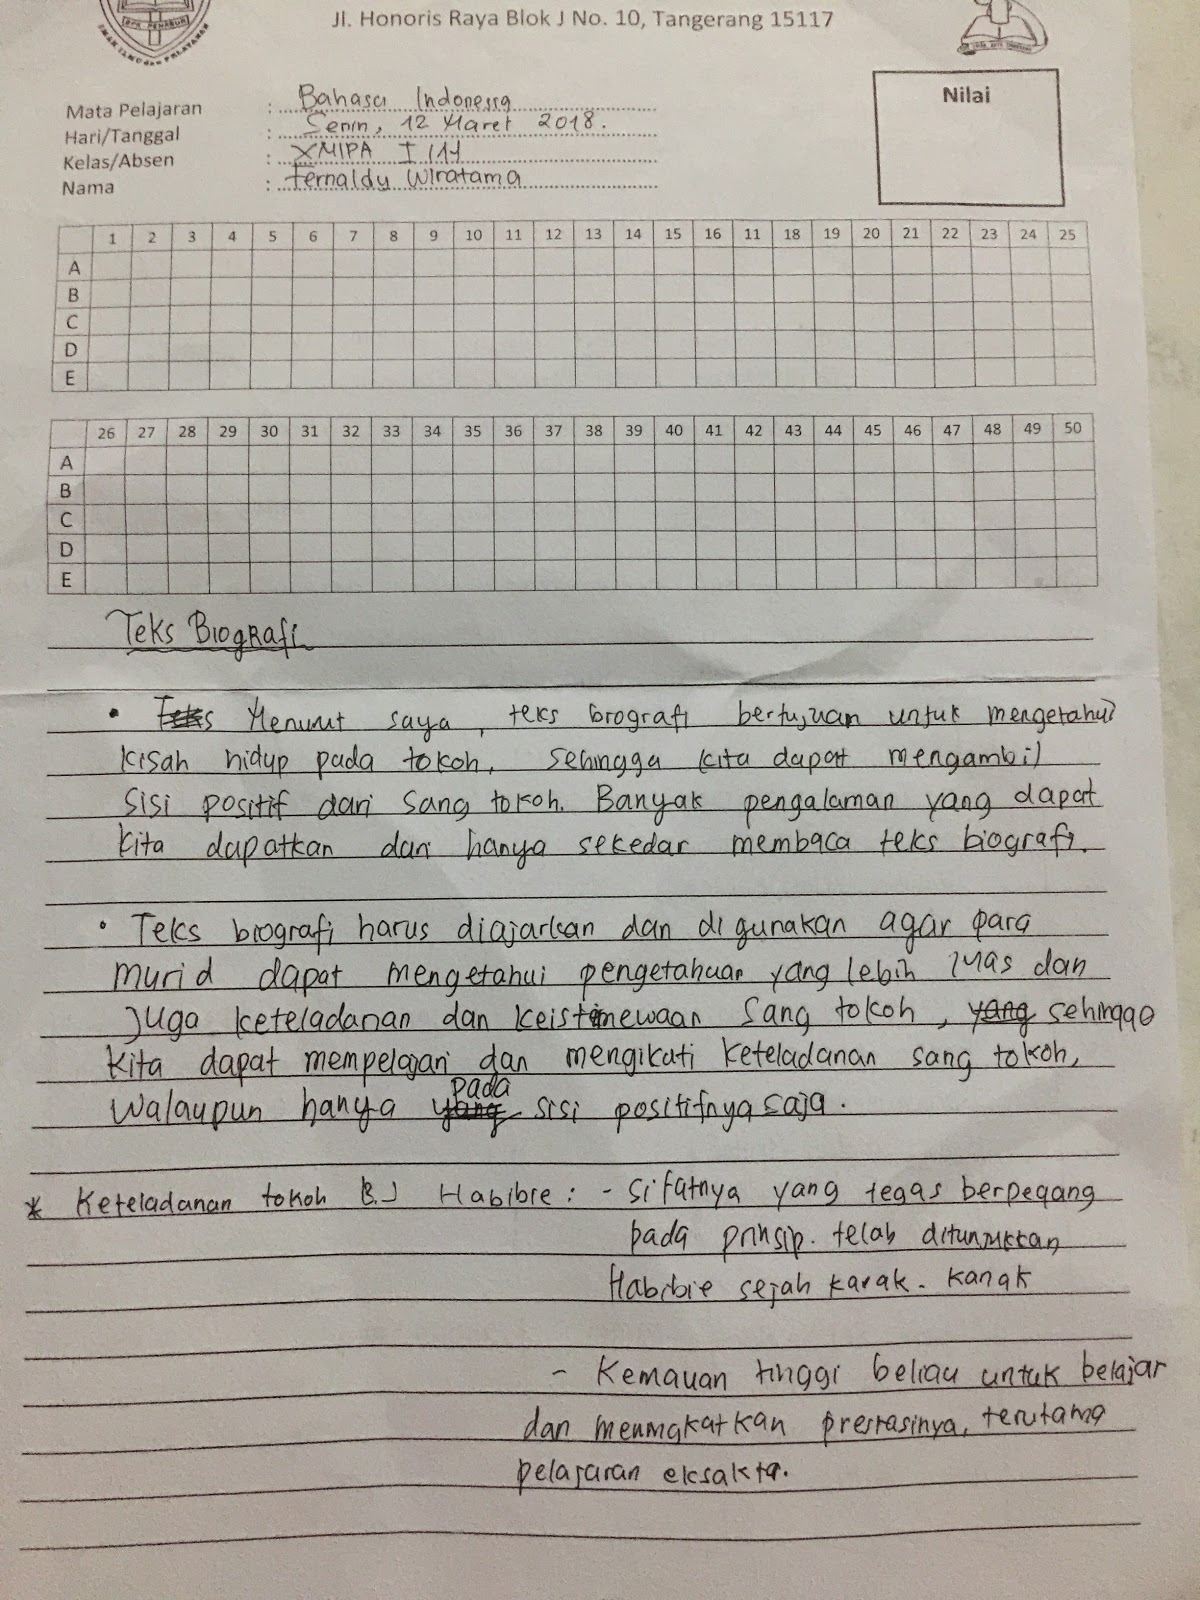 BPK PENABUR
IMAN ILMU dan PELAYANAN
Jl. Honoris Raya Blok J No. 10, Tangerang 15117
Nilai
Mata Pelajaran : Bahasa Indonesia
Hari/Tanggal : Senin, 12 Maret 2018.
Kelas/Absen : XMIPA I /11
Nama : Fernaldy Wiratama
1 2 3 4 5 6 7 8 9 10 11 12 13 14 15 16 11 18 19 20 21 22 23 24 25
A
B
C
D
E
26 27 28 29 30 31 32 33 34 35 36 37 38 39 40 41 42 43 44 45 46 47 48 49 50
A
B
C
D
E
Teks Biografi
• Teks Menurut saya, teks biografi bertujuan untuk mengetahui
kisah hidup pada tokoh, sehingga kita dapat mengambil
sisi positif dari sang tokoh. Banyak pengalaman yang dapat
kita dapatkan dari hanya sekedar membaca teks biografi.
• Teks biografi harus diajarkan dan di gunakan agar para
murid dapat mengetahui pengetahuan yang lebih luas dan
juga keteladanan dan keistimewaan sang tokoh, yang sehingga
kita dapat mempelajari dan mengikuti keteladanan sang tokoh,
walaupun hanya yang pada sisi positifnya saja.
* Keteladanan tokoh B.J Habibie : - Sifatnya yang tegas berpegang
pada prinsip. telah ditunjukkan
Habibie sejah karak-kanak
- Kemauan tinggi beliau untuk belajar
dan meningkatkan prestasinya, terutama
pelajaran eksakta.